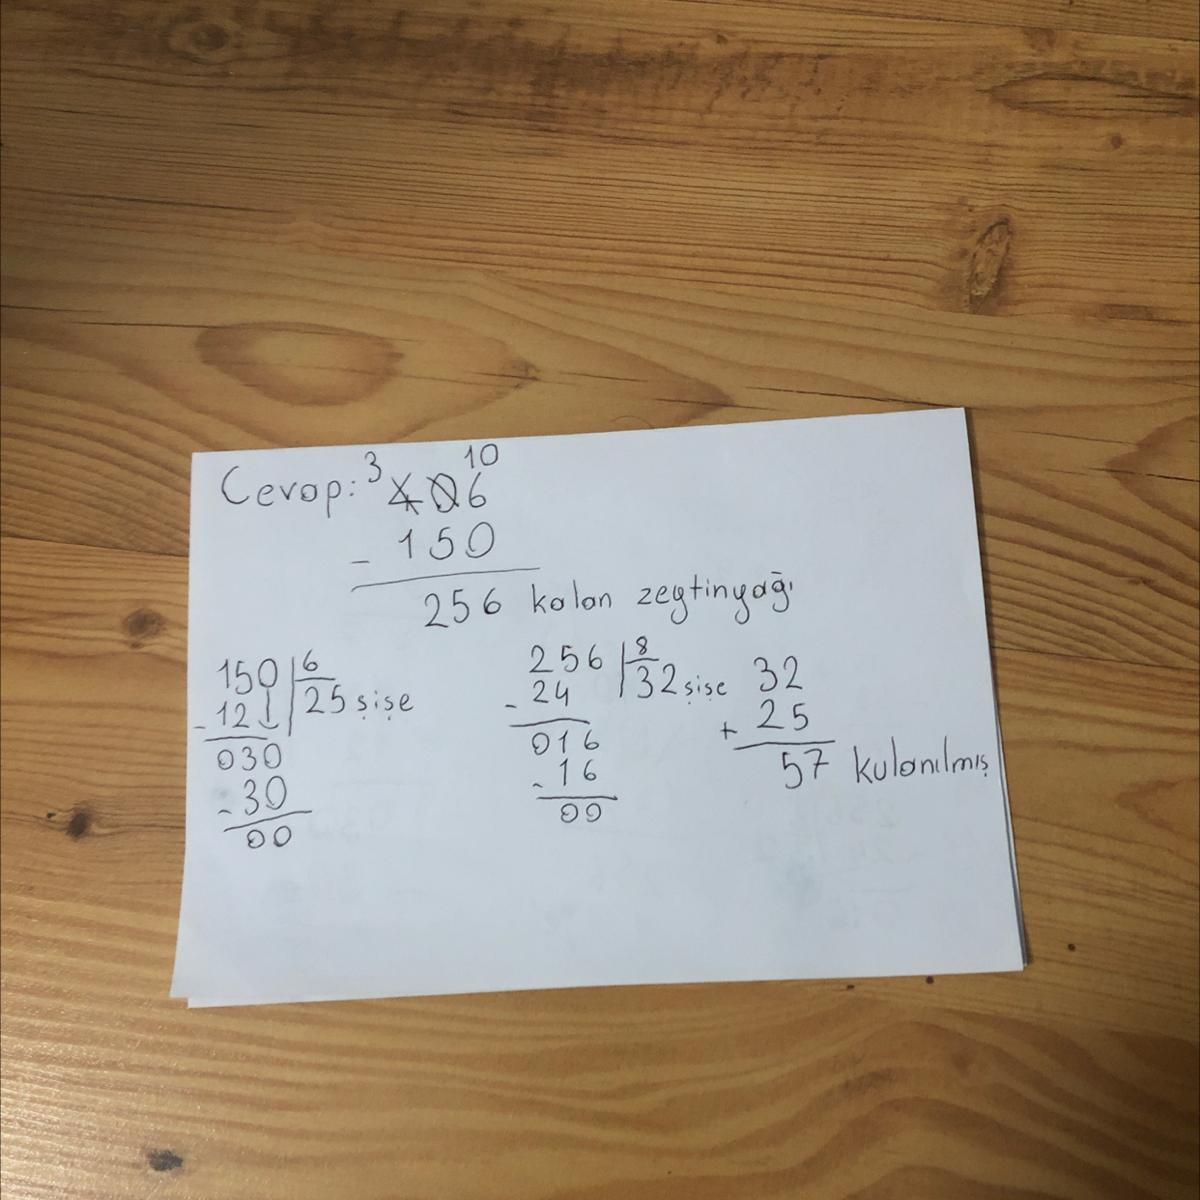 Cevap: 3 10
406
- 150
256 kalan zeytinyağı
150 6
- 12 25 şişe
030
- 30
00
256 8
- 24 32 şişe
016
- 16
00
32
+ 25
57 kulanılmış